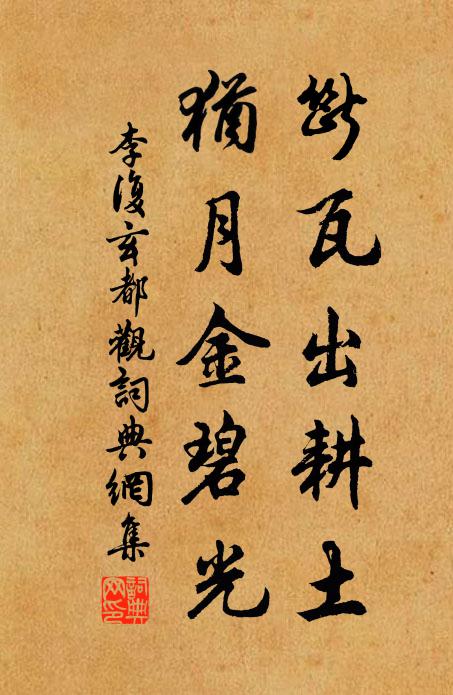 斷瓦出耕土
猶月金碧光
李復玄都觀詞典網集
詞典網印